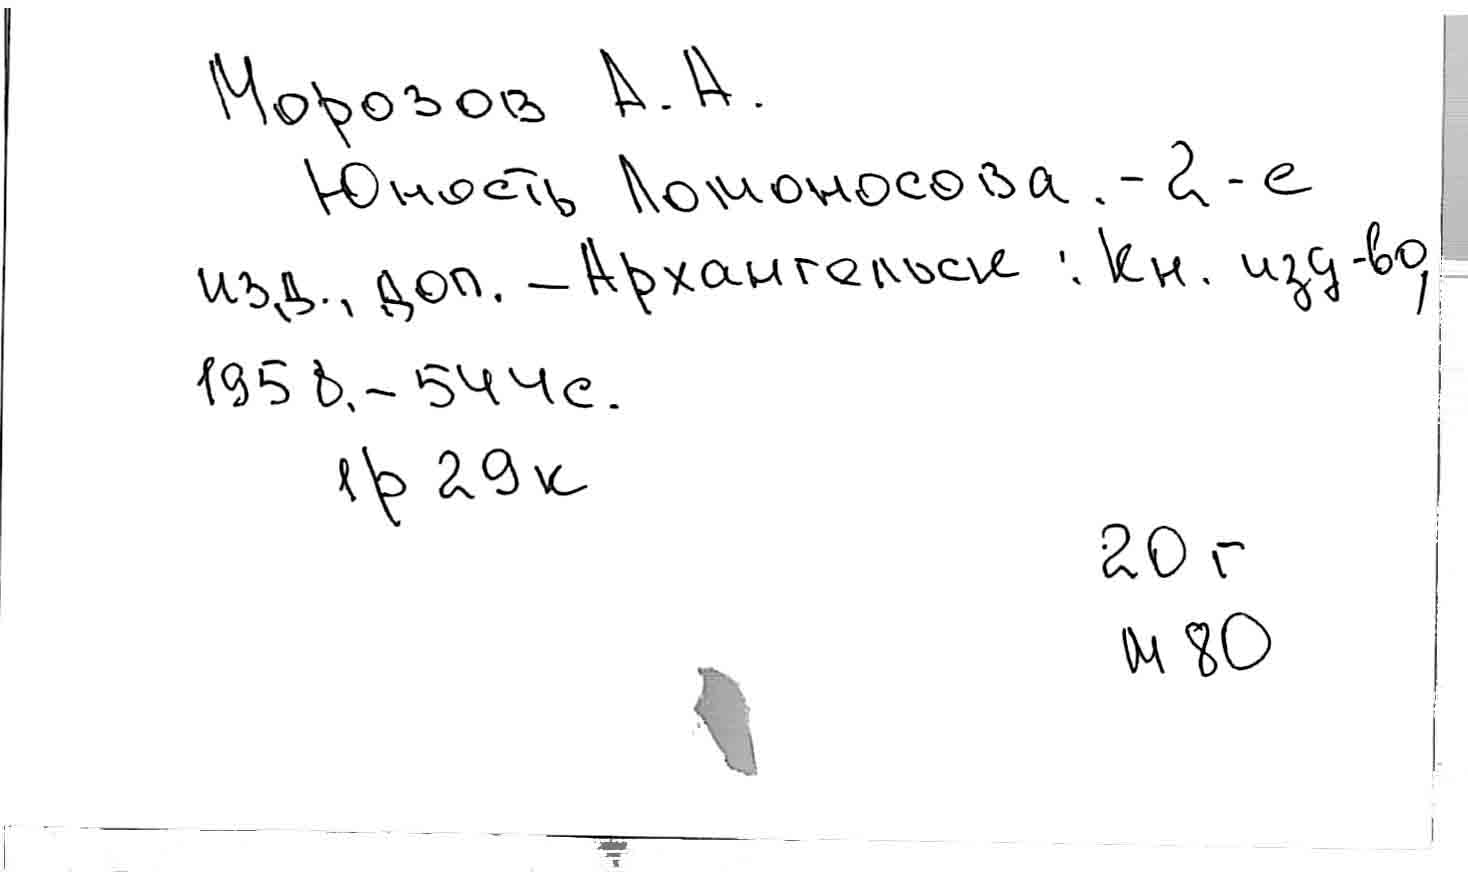 Морозов А. А.
Юность Ломоносова. - 2-е
изд., доп. - Архангельск : Кн. изд-во,
1958. - 544 с.
1р 29к
20 г
М 80